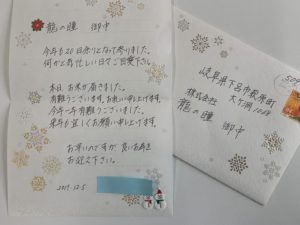 龍の瞳 御中
今年も20日余りとなって参りました。
何かと気忙しい日々ご自愛下さい。
本日、お米が届きました。
有難うございます。お礼申し上げます。
今年一年有難うございました。
来年も宜しくお願い申し上げます。
お早いのですが、良いお年を
お迎え下さい。
2017.12.5
岐阜県下呂市萩原町
大ヶ洞1068
株式会社
龍の瞳 御中